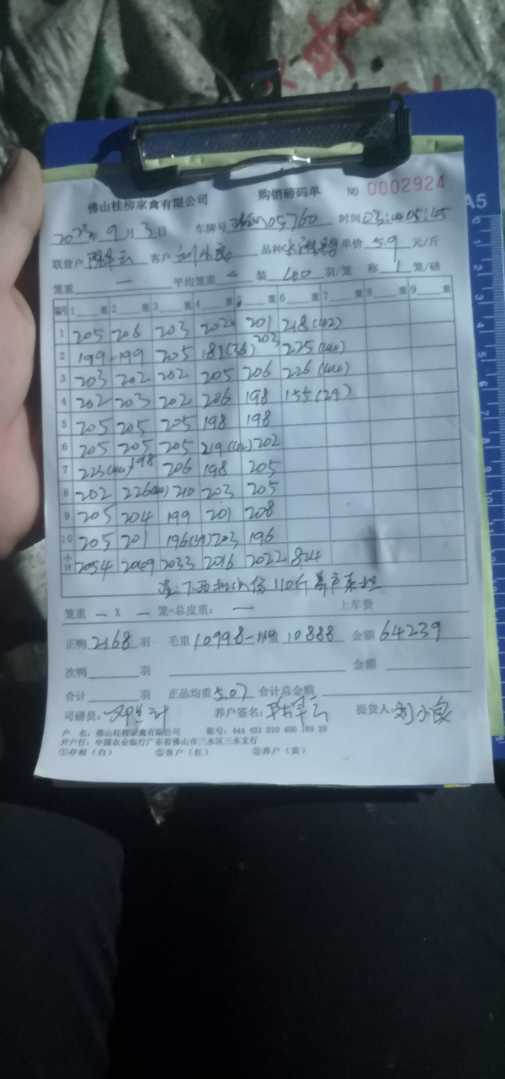 A5
佛山桂柳家禽有限公司 购销磅码单 № 0002924
2023年9月3日 车牌号 05760 时间 03:40 05:45
联营户 客户 刘小良 品种 单价 5.9 元/斤
笼重 一 平均笼重 装 400 羽/笼 称 1 笼/磅
编号 1 重 2 重 3 重 4 重 重 6 重 7 重 8 重 9 重
1 205 206 203 202 201 218(42)
2 199 199 205 181(36) 203 225(44)
3 203 202 202 205 206 226(44)
4 202 203 202 206 198 155(29)
5 205 205 205 198 198
6 205 205 205 219(42) 202
7 223(44) 198 206 198 205
8 202 226(44) 210 203 205
9 205 204 199 201 208
10 205 201 196(39) 203 196
小计 2054 2049 2033 2016 2022 824
110斤
笼重 一 X 一 笼=总皮重: 一 上车费
正鸭 2168 羽 毛重 10998-110 10888 金额 64239
次鸭 羽 金额
合计 羽 正品均重 5.07 合计总金额
司磅员: 养户签名: 提货人: 刘小良
户 名: 佛山桂柳家禽有限公司 账号:
开户行: 中国农业银行广东省佛山市三水区三水支行
①存根(白) ②客户(红) ③养户(黄)